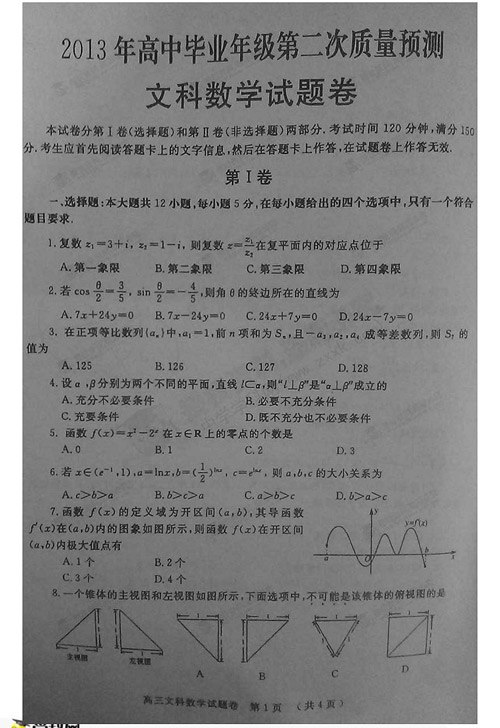 2013年高中毕业年级第二次质量预测
文科数学试题卷
本试卷分第Ⅰ卷(选择题)和第Ⅱ卷(非选择题)两部分.考试时间120分钟,满分150
分.考生应首先阅读答题卡上的文字信息,然后在答题卡上作答,在试题卷上作答无效.
第Ⅰ卷
一、选择题:本大题共12小题,每小题5分,在每小题给出的四个选项中,只有一个符合
题目要求.
1.复数z₁=3+i, z₂=1-i, 则复数z=z₁/z₂在复平面内的对应点位于
A.第一象限 B.第二象限 C.第三象限 D.第四象限
2.若cos θ/2=3/5, sin θ/2=-4/5,则角θ的终边所在的直线为
A.7x+24y=0 B.7x-24y=0 C.24x+7y=0 D.24x-7y=0
3.在正项等比数列{aₙ}中,a₁=1,前n项和为Sₙ,且-a₃,a₂,a₄成等差数列,则S₇的
值为
A.125 B.126 C.127 D.128
4.设α,β分别为两个不同的平面,直线l⊂α,则“l⊥β”是“α⊥β”成立的
A.充分不必要条件 B.必要不充分条件
C.充要条件 D.既不充分也不必要条件
5.函数f(x)=x²-2ˣ在x∈R上的零点的个数是
A.0 B.1 C.2 D.3
6.若x∈(e⁻¹,1),a=lnx,b=(1/2)^lnx, c=e^lnx, 则a,b,c的大小关系为
A.c>b>a B.b>c>a C.a>b>c D.b>a>c
7.函数f(x)的定义域为开区间(a,b),其导函数
f′(x)在(a,b)内的图象如图所示,则函数f(x)在开区间
(a,b)内极大值点有
A.1个 B.2个
C.3个 D.4个
y
y=f′(x)
a
O
b
x
8.一个锥体的主视图和左视图如图所示,下面选项中,不可能是该锥体的俯视图的是
主视图 左视图 A B C D
高三文科数学试题卷 第1页 (共4页)